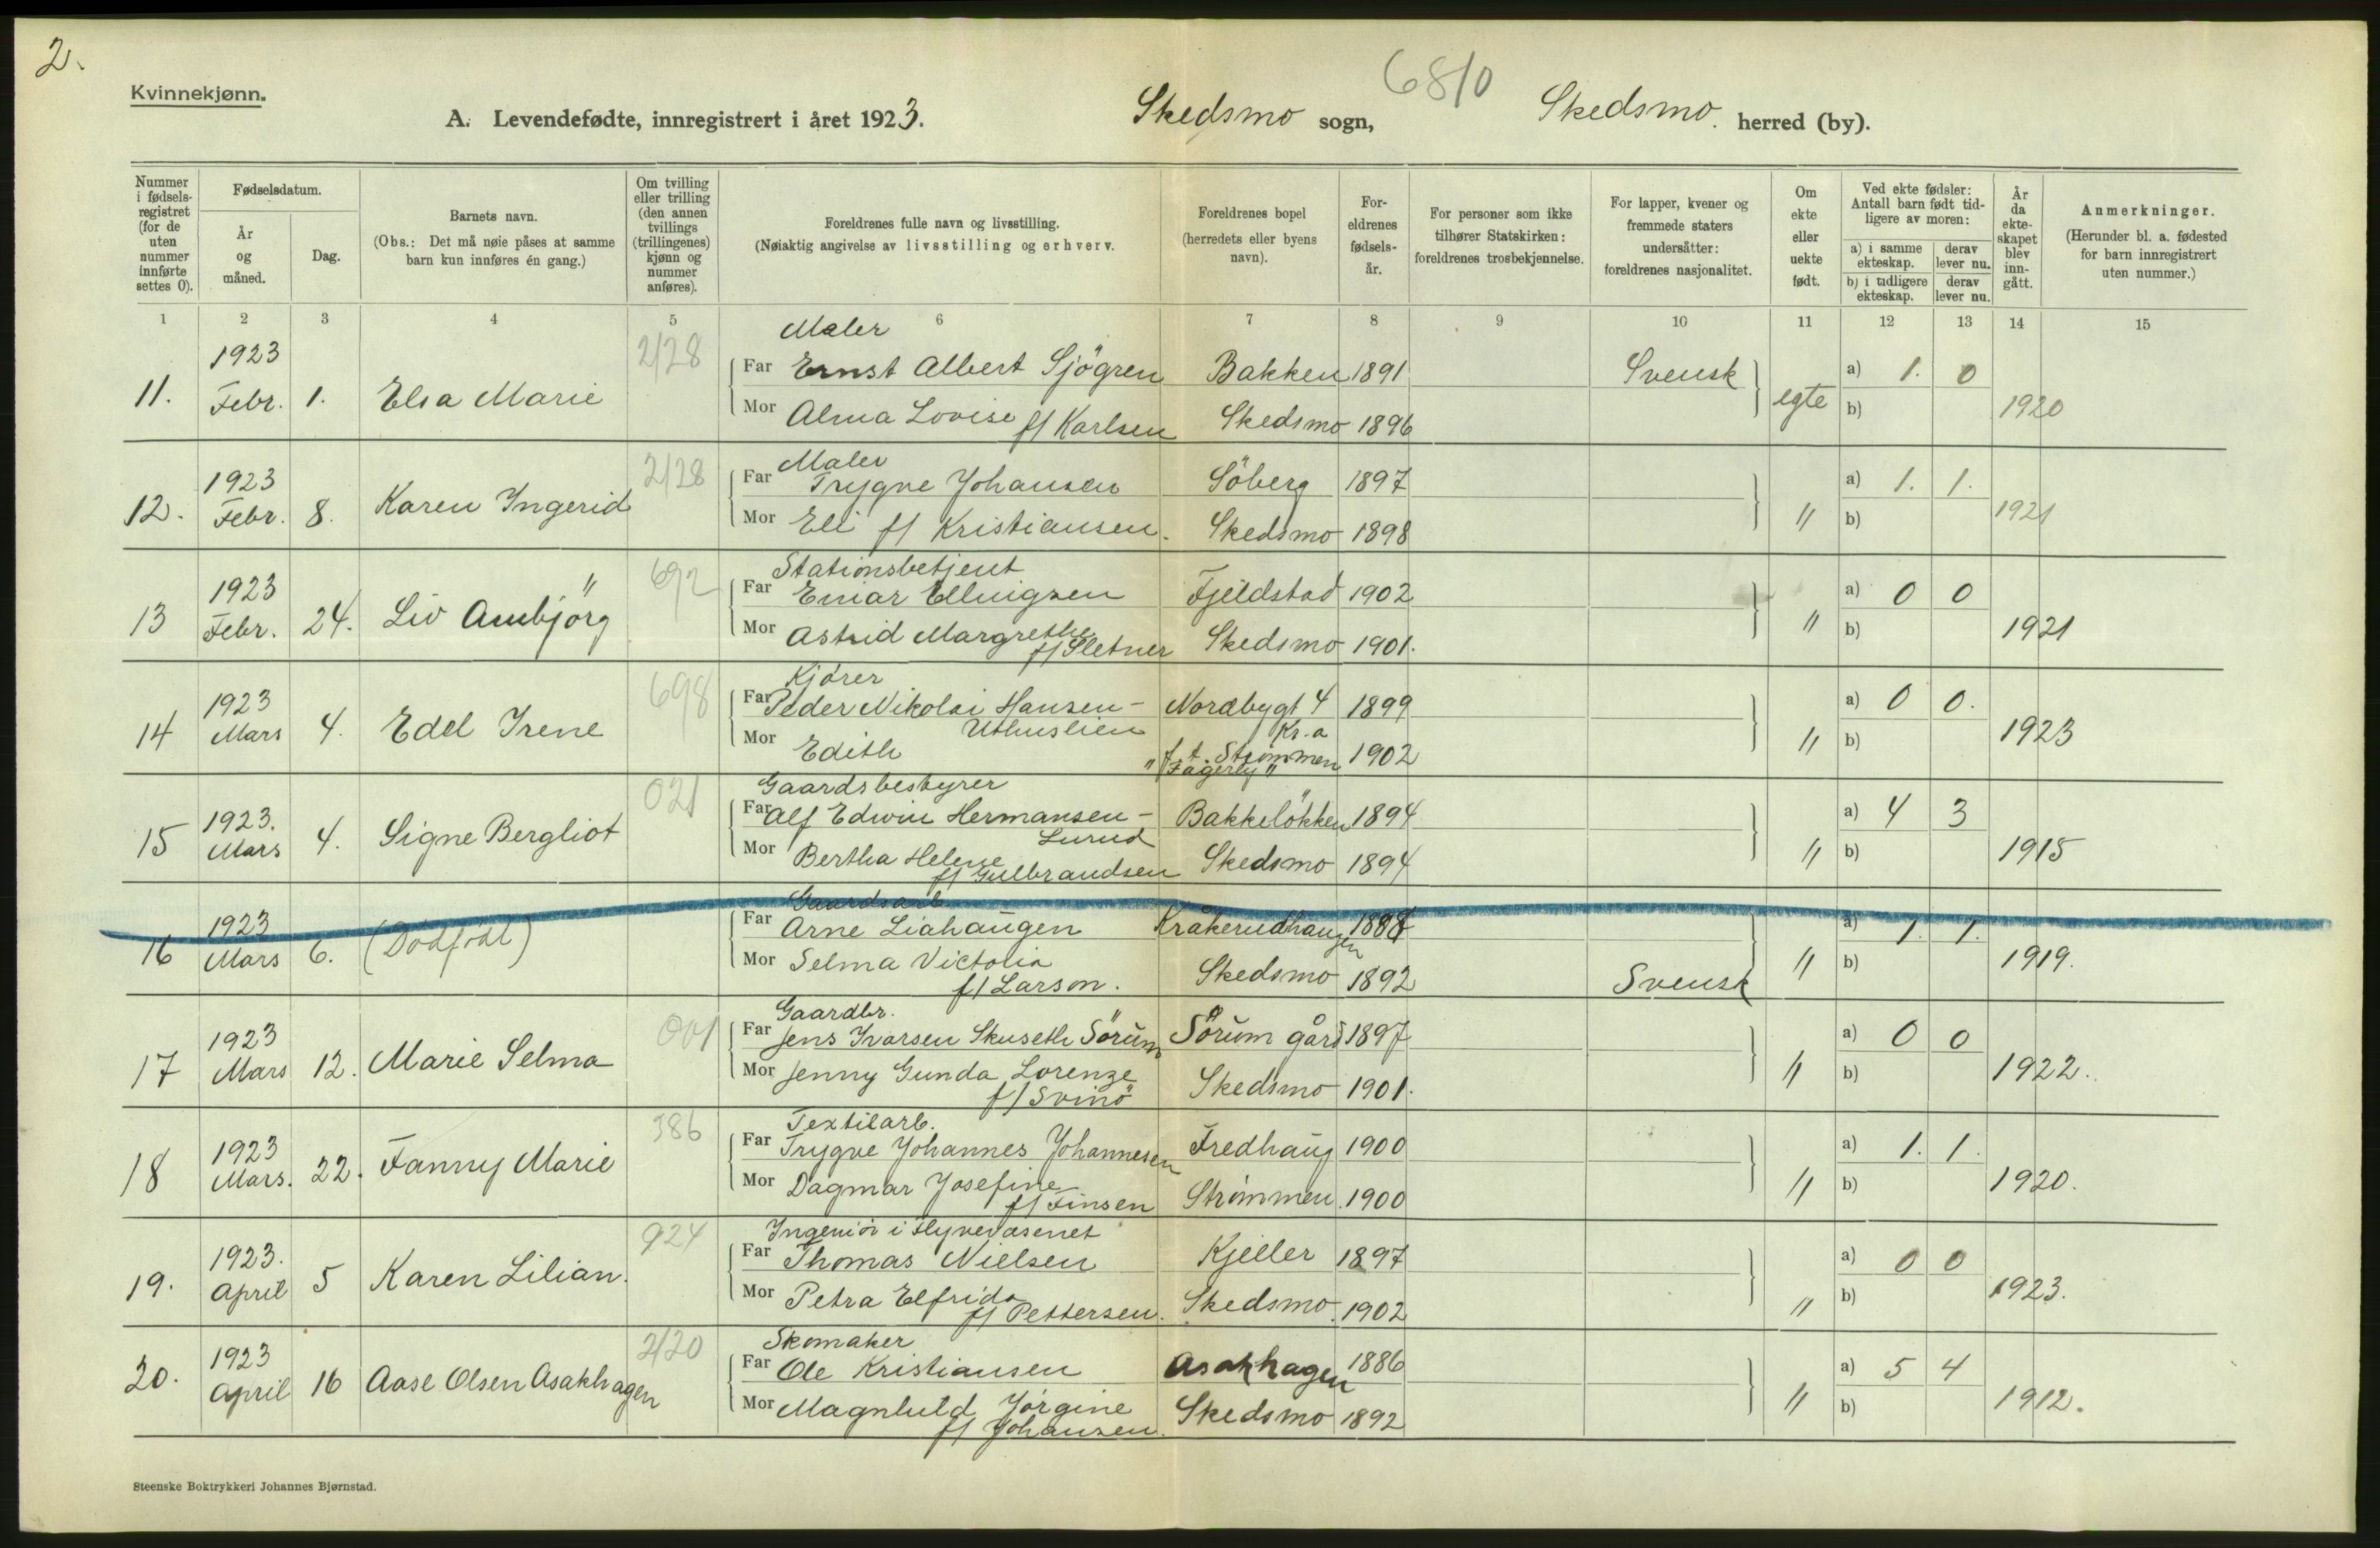 2.
Kvinnekjønn.
A. Levendefødte, innregistrert i året 1923.
Skedsmo sogn,
6810
Skedsmo. herred (by).
Nummer i fødsels-registret (for de uten nummer innførte settes 0).
Fødselsdatum.
År og måned.
Dag.
Barnets navn.
(Obs.: Det må nøie påses at samme barn kun innføres én gang.)
Om tvilling eller trilling (den annen tvillings (trillingenes) kjønn og nummer anføres).
Foreldrenes fulle navn og livsstilling.
(Nøiaktig angivelse av livsstilling og erhverv.
Foreldrenes bopel (herredets eller byens navn).
For-eldrenes fødsels-år.
For personer som ikke tilhører Statskirken: foreldrenes trosbekjennelse.
For lapper, kvener og fremmede staters undersåtter: foreldrenes nasjonalitet.
Om ekte eller uekte født.
Ved ekte fødsler: Antall barn født tid-ligere av moren:
a) i samme ekteskap.
derav lever nu.
b) i tidligere ekteskap.
derav lever nu.
År da ekte-skapet blev inn-gått.
Anmerkninger.
(Herunder bl. a. fødested for barn innregistrert uten nummer.)
1 2 3 4 5 6 7 8 9 10 11 12 13 14 15
Maler
11. 1923 Febr. 1. Elsa Marie 2/28
Far Ernst Albert Sjögren Bakken 1891 Svensk egte a) 1. 0
Mor Alma Lovise f/ Karlsen Skedsmo 1896 b) 1920
Maler
12. 1923 Febr. 8. Karen Ingerid 2/28
Far Trygve Johansen Söberg 1897 a) 1. 1.
Mor Eli f/ Kristiansen. Skedsmo 1898 " b) 1921
Stationsbetjent
13 1923 Febr. 24. Liv Aubjörg 692
Far Einar Ellingsen Fjeldstad 1902 a) 0 0
Mor Astrid Margrethe f/ Sletner Skedsmo 1901. " b) 1921
Kjører
14 1923 Mars 4. Edel Irene 698
Far Peder Nikolai Hansen - Uthuslien Nordbygt 4 Kr.a 1899 a) 0 0.
Mor Edith f. t. Strømmen "Fagerly" 1902 " b) 1923
Gaardsbestyrer
15 1923. Mars 4. Signe Bergliot 021
Far Alf Edwin Hermansen - Lurud Bakkelökken 1894 a) 4 3
Mor Bertha Helene f/ Gulbrandsen Skedsmo 1894 " b) 1915
Gaardsarb
16 1923 Mars 6. (Dödfödt)
Far Arne Liahaugen Kråkerudhaugen a) 1. 1.
Mor Selma Victoria f/ Larson. Skedsmo 1892 Svensk " b) 1919.
Gaardbr.
17 1923 Mars 12. Marie Selma 001
Far Jens Ivarsen Skuseth Sörum Sörum gård 1897 a) 0 0
Mor Jenny Gunda Lorenze f/ Svinö Skedsmo 1901. " b) 1922.
Textilarb.
18 1923 Mars. 22. Fanny Marie 386
Far Trygve Johannes Johannesen Fredhaug 1900 a) 1. 1.
Mor Dagmar Josefine f/ Finsen Strömmen. 1900 " b) 1920.
Ingeniör i Flyvevæsenet
19. 1923. April 5 Karen Lilian. 924
Far Thomas Nielsen Kjeller 1897 a) 0 0
Mor Petra Elfrida f/ Pettersen. Skedsmo. 1902 " b) 1923.
Skomaker
20. 1923 April 16 Aase Olsen Asakhagen 2/20
Far Ole Kristiansen Asakhagen 1886 a) 5 4
Mor Magnhild Jörgine f/ Johansen. Skedsmo 1892 " b) 1912.
Steenske Boktrykkeri Johannes Bjørnstad.